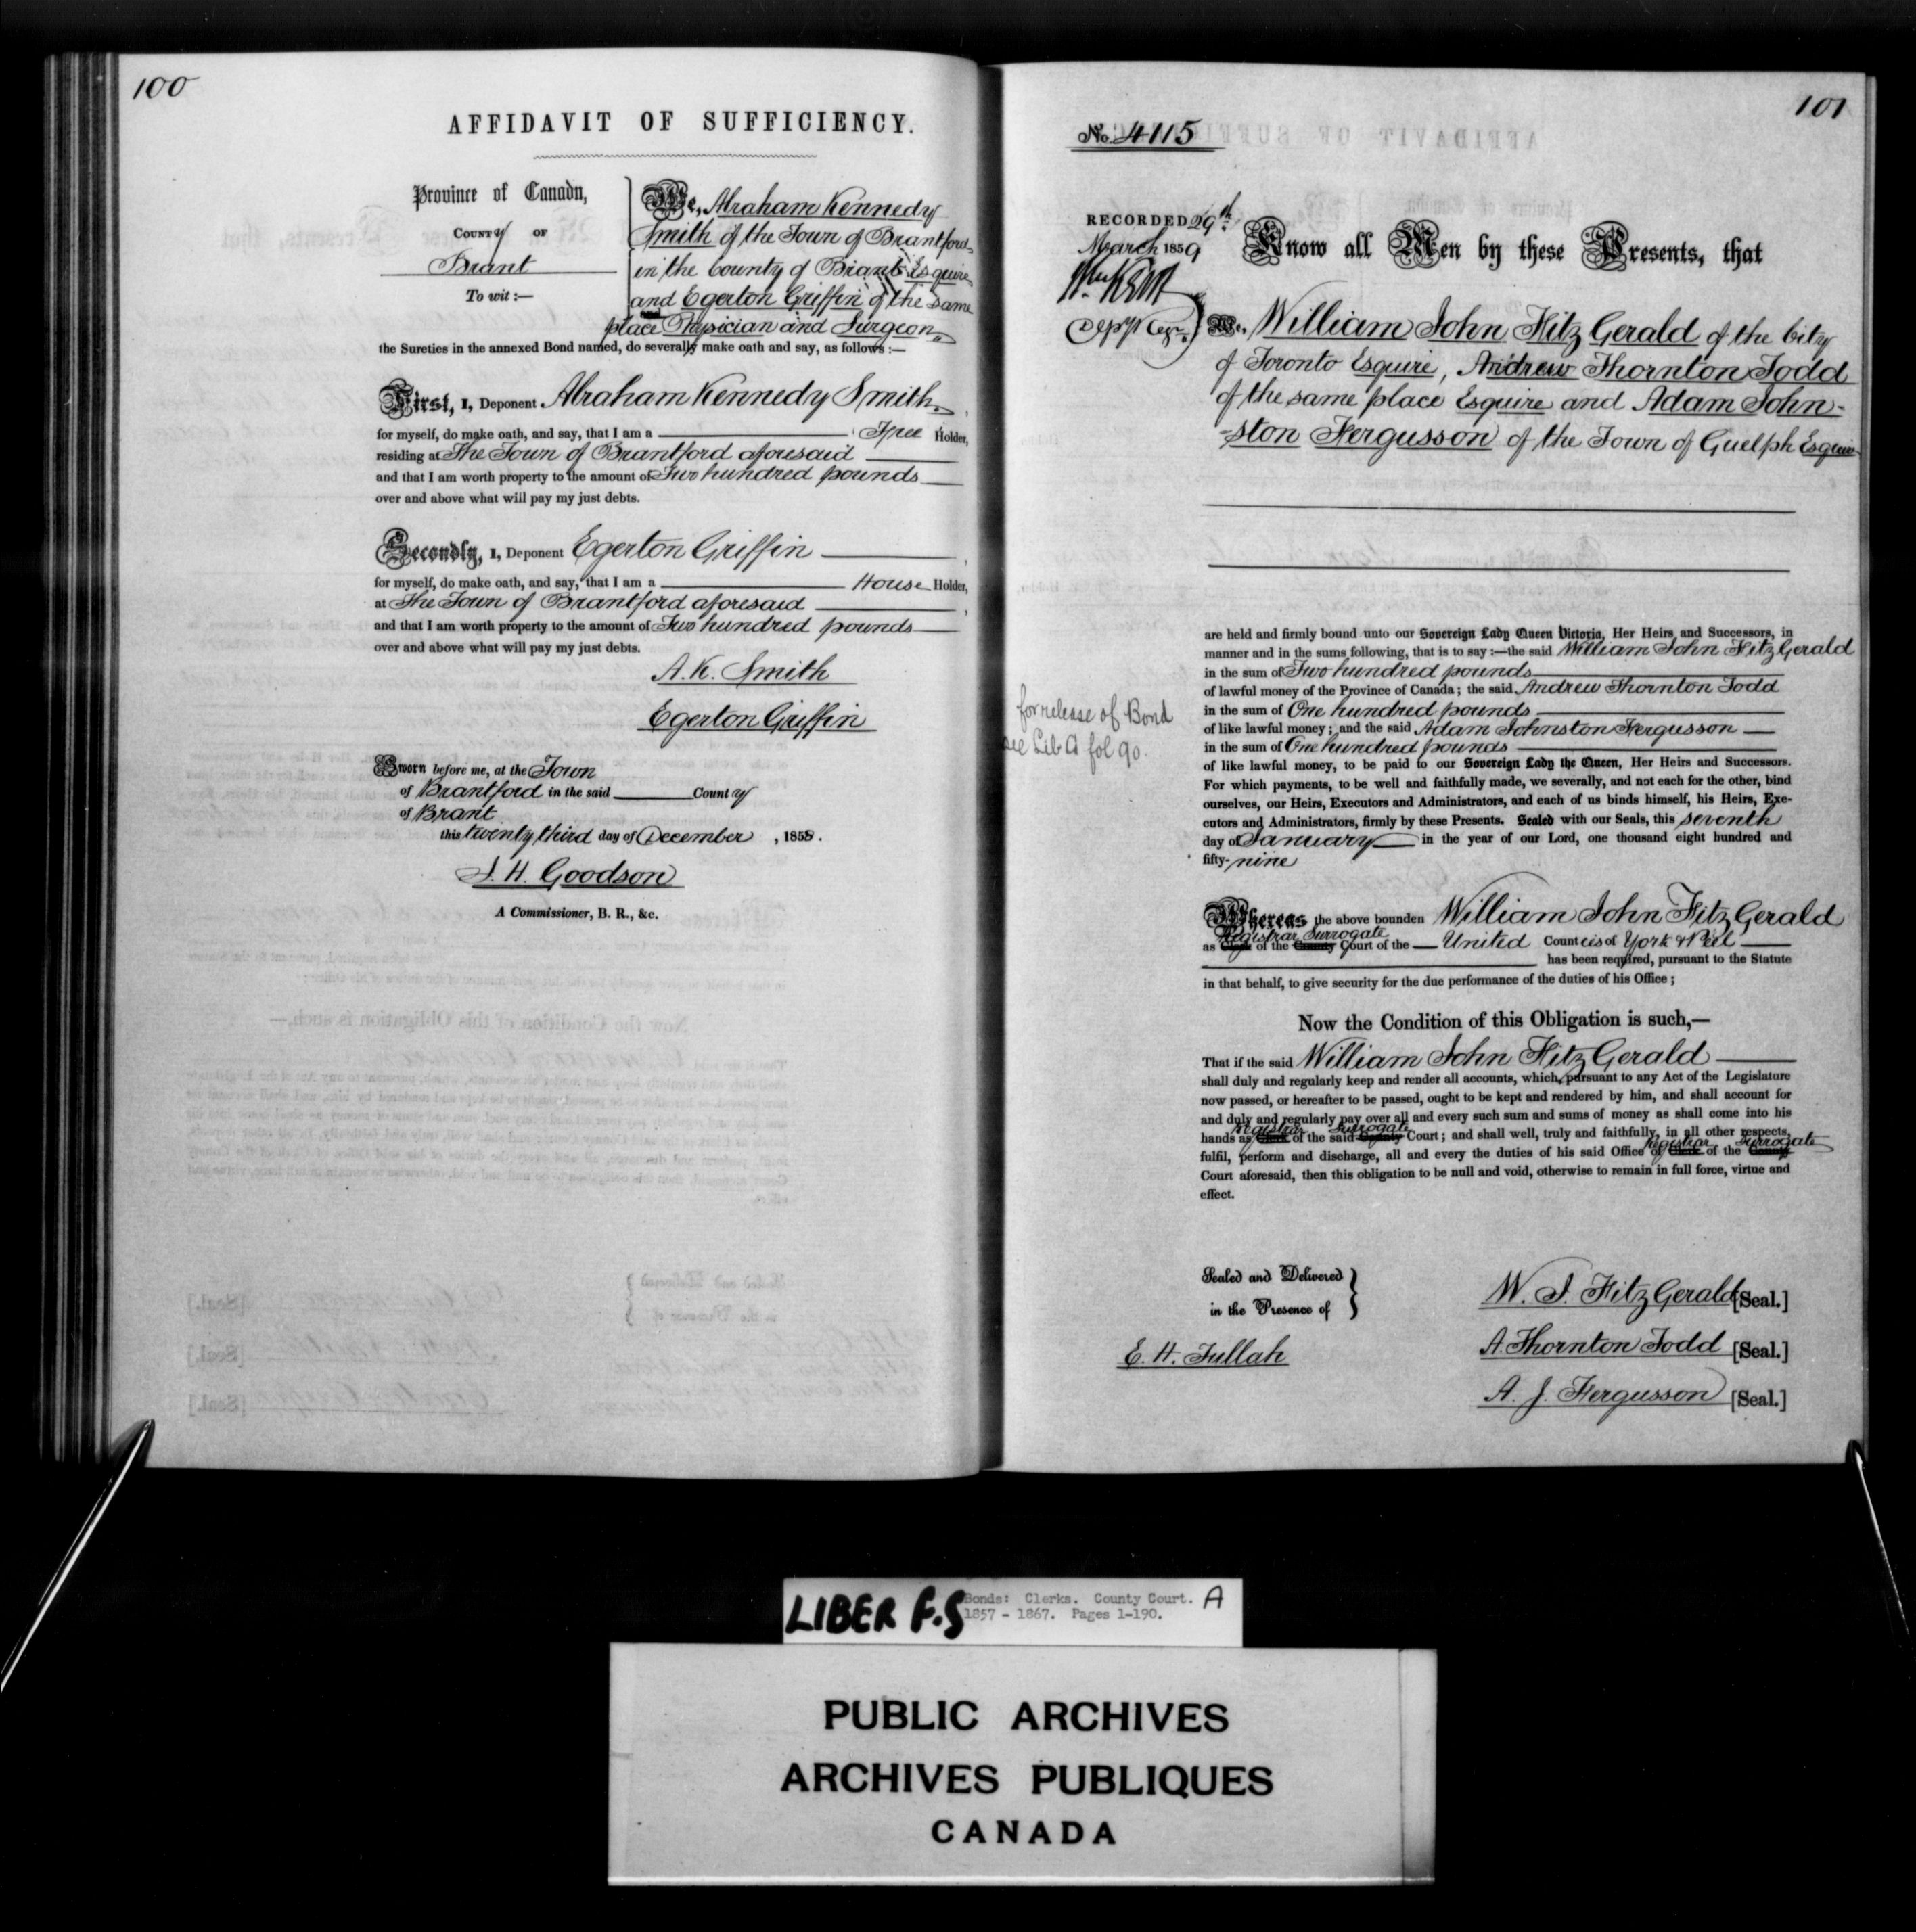 100
AFFIDAVIT OF SUFFICIENCY.
Province of Canada,
County OF
Brant
To wit:—
We, Abraham Kennedy
Smith of the Town of Brantford
in the County of Brant Esquire
and Egerton Griffin of the same
place Physician and Surgeon
the Sureties in the annexed Bond named, do severally make oath and say, as follows:—
First, I, Deponent Abraham Kennedy Smith
for myself, do make oath, and say, that I am a Free Holder,
residing at The Town of Brantford aforesaid
and that I am worth property to the amount of Two hundred pounds
over and above what will pay my just debts.
Secondly, I, Deponent Egerton Griffin
for myself, do make oath, and say, that I am a House Holder,
at The Town of Brantford aforesaid
and that I am worth property to the amount of Two hundred pounds
over and above what will pay my just debts.
A. K. Smith
Egerton Griffin
Sworn before me, at the Town
of Brantford in the said County
of Brant
this twenty third day of December, 1858.
J. H. Goodson
A Commissioner, B. R., &c.
101
No. 4115
RECORDED 29th
March 1859
Depy Regr.
Know all Men by these Presents, that
We, William John FitzGerald of the City
of Toronto Esquire, Andrew Thornton Todd
of the same place Esquire and Adam John-
-ston Fergusson of the Town of Guelph Esquire
are held and firmly bound unto our Sovereign Lady Queen Victoria, Her Heirs and Successors, in
manner and in the sums following, that is to say:—the said William John FitzGerald
in the sum of Two hundred pounds
of lawful money of the Province of Canada; the said Andrew Thornton Todd
in the sum of One hundred pounds
of like lawful money; and the said Adam Johnston Fergusson
in the sum of One hundred pounds
of like lawful money, to be paid to our Sovereign Lady the Queen, Her Heirs and Successors.
For which payments, to be well and faithfully made, we severally, and not each for the other, bind
ourselves, our Heirs, Executors and Administrators, and each of us binds himself, his Heirs, Exe-
cutors and Administrators, firmly by these Presents. Sealed with our Seals, this seventh
day of January in the year of our Lord, one thousand eight hundred and
fifty-nine
for release of Bond
see Lib A fol 90.
Whereas the above bounden William John FitzGerald
Registrar Surrogate
as Clerk of the County Court of the United Counties of York & Peel
has been required, pursuant to the Statute
in that behalf, to give security for the due performance of the duties of his Office;
Now the Condition of this Obligation is such,—
That if the said William John FitzGerald
shall duly and regularly keep and render all accounts, which, pursuant to any Act of the Legislature
now passed, or hereafter to be passed, ought to be kept and rendered by him, and shall account for
and duly and regularly pay over all and every such sum and sums of money as shall come into his
Registrar Surrogate
hands as Clerk of the said County Court; and shall well, truly and faithfully, in all other respects,
Registrar Surrogate
fulfil, perform and discharge, all and every the duties of his said Office of Clerk of the County
Court aforesaid, then this obligation to be null and void, otherwise to remain in full force, virtue and
effect.
Sealed and Delivered
in the Presence of
E. H. Tullah
W. J. FitzGerald [Seal.]
A. Thornton Todd [Seal.]
A. J. Fergusson [Seal.]
LIBER F.S
Bonds: Clerks. County Court. A
1857 - 1867. Pages 1-190.
PUBLIC ARCHIVES
ARCHIVES PUBLIQUES
CANADA